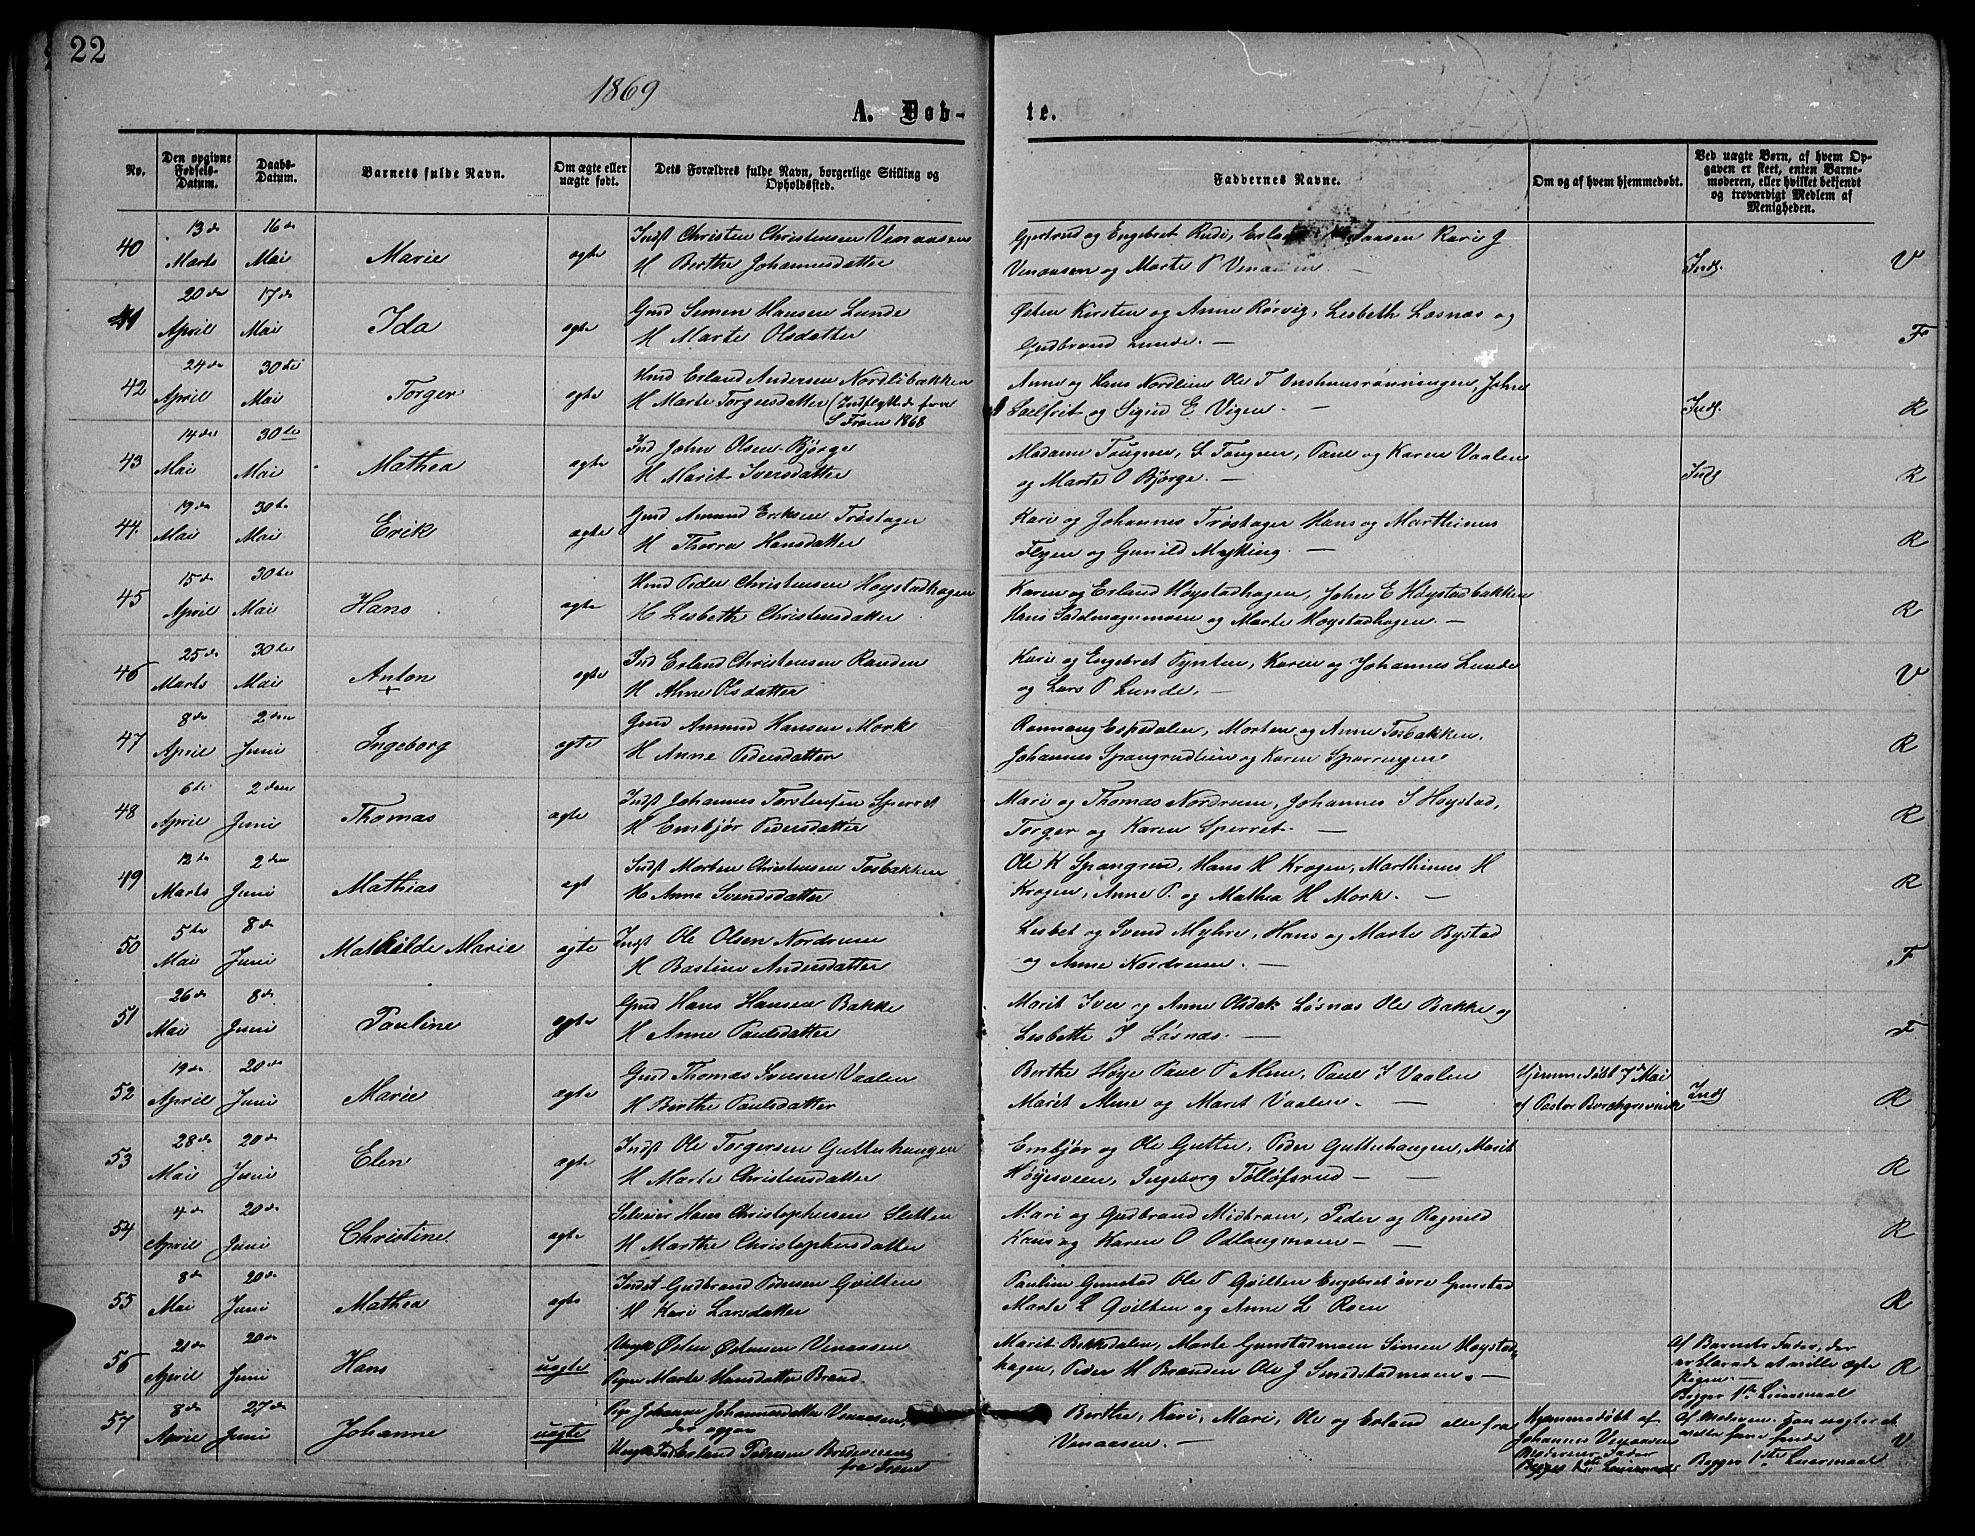 22
1869
A. Døb-
te.
No.
Den opgivne Fødsels-Datum.
Daabs-Datum.
Barnets fulde Navn.
Om ægte eller uægte født.
Dets Forældres fulde Navn, borgerlige Stilling og Opholdssted.
Faddernes Navne.
Om og af hvem hjemmedøbt.
Ved uægte Børn, af hvem Op-
gaven er skeet, enten Barne-
moderen, eller hvilket bekjendt
og troværdigt Medlem af
Menigheden.
40 13de Marts 16de Mai Marie ægte Indst Christen Christensen Venaasen
H Berthe Johannesdatter
Gjertrud og Engebret Rudi, Kari J
Venaasen og Marte P Venaasen — Inds. V
41 20de April 17de Mai Ida ægte Gmd Simen Hansen Lunde
H Marte Olsdatter
Østen Kirsten og Anne Rørvig, Lisbeth Læsnæs og
Gudbrand Lunde. — F
42 24de April 30te Mai Torger ægte Hmd Erland Andersen Nordlibakken
H Marte Torgersdatter (Indflyttede fra
S Fron 1868
Anne og Hans Nordlien Ole T Onshusrønningen, John
og Sigrid E Vigen. — Inds. R
43 14de Mai 30te Mai Mathea ægte Ind John Olsen Bjørge
H Marit Iversdatter
Madame Taugøen, S Taugøen, Paul og Karen Vaalen
og Marte O Bjørge. — Inds R
44. 19de Mai 30te Mai Erik ægte Gmd Amund Eriksen Trøstager
H Thorra Hansdatter
Kari og Johannes Trøstager Hans og Marthinus
Flyen og Gunild Myking. — R
45 15de April 30te Mai Hans ægte Hmd Peder Christensen Høystadhagen
H Lisbeth Christensdatter
Karen og Erland Høystadhagen, John E Høystadbakken
Hans Sadelmagermoen og Marte Høystadhagen. — R
46 25de Marts 30te Mai Anton ægte Ind Erland Christensen Randen
+
H Anne Olsdatter
Kari og Engebret Pynten, Karen og Johannes Lunde
og Lars P Lunde. — V
47 8de April 2den Juni Ingeborg ægte Gmd Amund Hansen Mork
H Anne Pedersdatter
Rannang Espedalen, Morten og Anne Tosbakken,
Johannes Spangrudlien og Karen Sparringen R
48 6te April 2den Juni Thomas ægte Indst Johannes Torstensen Sperret
H Embjør Pedersdatter
Mari og Thomas Nordrum, Johannes S Høystad,
Torger og Karen Sperret. — R
49 12te Marts 2den Juni Mathias ægt Indst Morten Christensen Tosbakken
H Anne Svendsdatter
Ole K Spangrud, Hans H Krogen, Marthinus H
Krogen, Anne P. og Mathea H Mork. — R
50 5te Mai 8de Juni Mathilde Marie ægte Indst Ole Olsen Nordrum
H Bastine Andersdatter
Lisbet og Svend Myhre, Hans og Marte Bystad
og Anne Nordrum. — F
51 26de Mai 8de Juni Pauline ægte Gmd Hans Hansen Bakke
H Anne Paulsdatter
Marit Iver og Anne Olsdat Løsnæs Ole Bakke og
Lisbeth I Løsnæs. — F
52 19de April 20de Juni Marie ægte Gmd Thomas Iversen Vaalen
H Berthe Paulsdatter
Berthe Høye Paul P Alme, Paul I Vaalen
Marit Alme og Maret Vaalen. — Hjemmedøbt 7de Mai
af Pastor Borchgrevink Inds R
53 28de Mai 20de Juni Elen ægte Indst Ole Torgersen Guttuhaugen
H Marte Christensdatter
Embjør og Ole Guttu, Peder Guttuhaugen, Marit
Høyesveen, Ingeborg Tølløfsrud — R
54 4de April 20de Juni Christine ægte Selveier Hans Christophersen Sletten
H Marthe Christophersdatter
Mari og Gudbrand Midtrøen, Peder og Ragnild
og Karen O Odlaugmoen — R
55 8de Mai 20de Juni Mathea ægte Indst Gudbrand Pedersen Qvilten
H Kari Larsdatter
Pauline Gunstad Ole P Qvilten Engebret øvre Gunstad
Marte L Qvilten og Anne L Roen R
56 21de April 20de Juni Hans uægte Ungk Østen Østensen Venaasen
Pigen Marte Hansdatter Brand
Marit Bekkdalen, Marte Gunstadmoen Simen Høystad-
hagen, Peder H Branden Ole J Smedstadmoen. — Af Barnets Fader, der
erklærede at ville ægte
Pigen. —
Begges 1ste Leiermaal R
57 8de April 27de Juni Johanne uægte Pig Johanne Johannesdatter Venaasen,
der opgav
Ungk Ind Erland Pedersen
fra Fron
Berthe, Kari, Mari, Ole og Erland alle fra
Venaasen. — Hjemmedøbt af
Johannes Venaasen
Moderens Fader
Begges 1ste Leiermaal
af Moderen.
Begges 1ste Leiermaal V